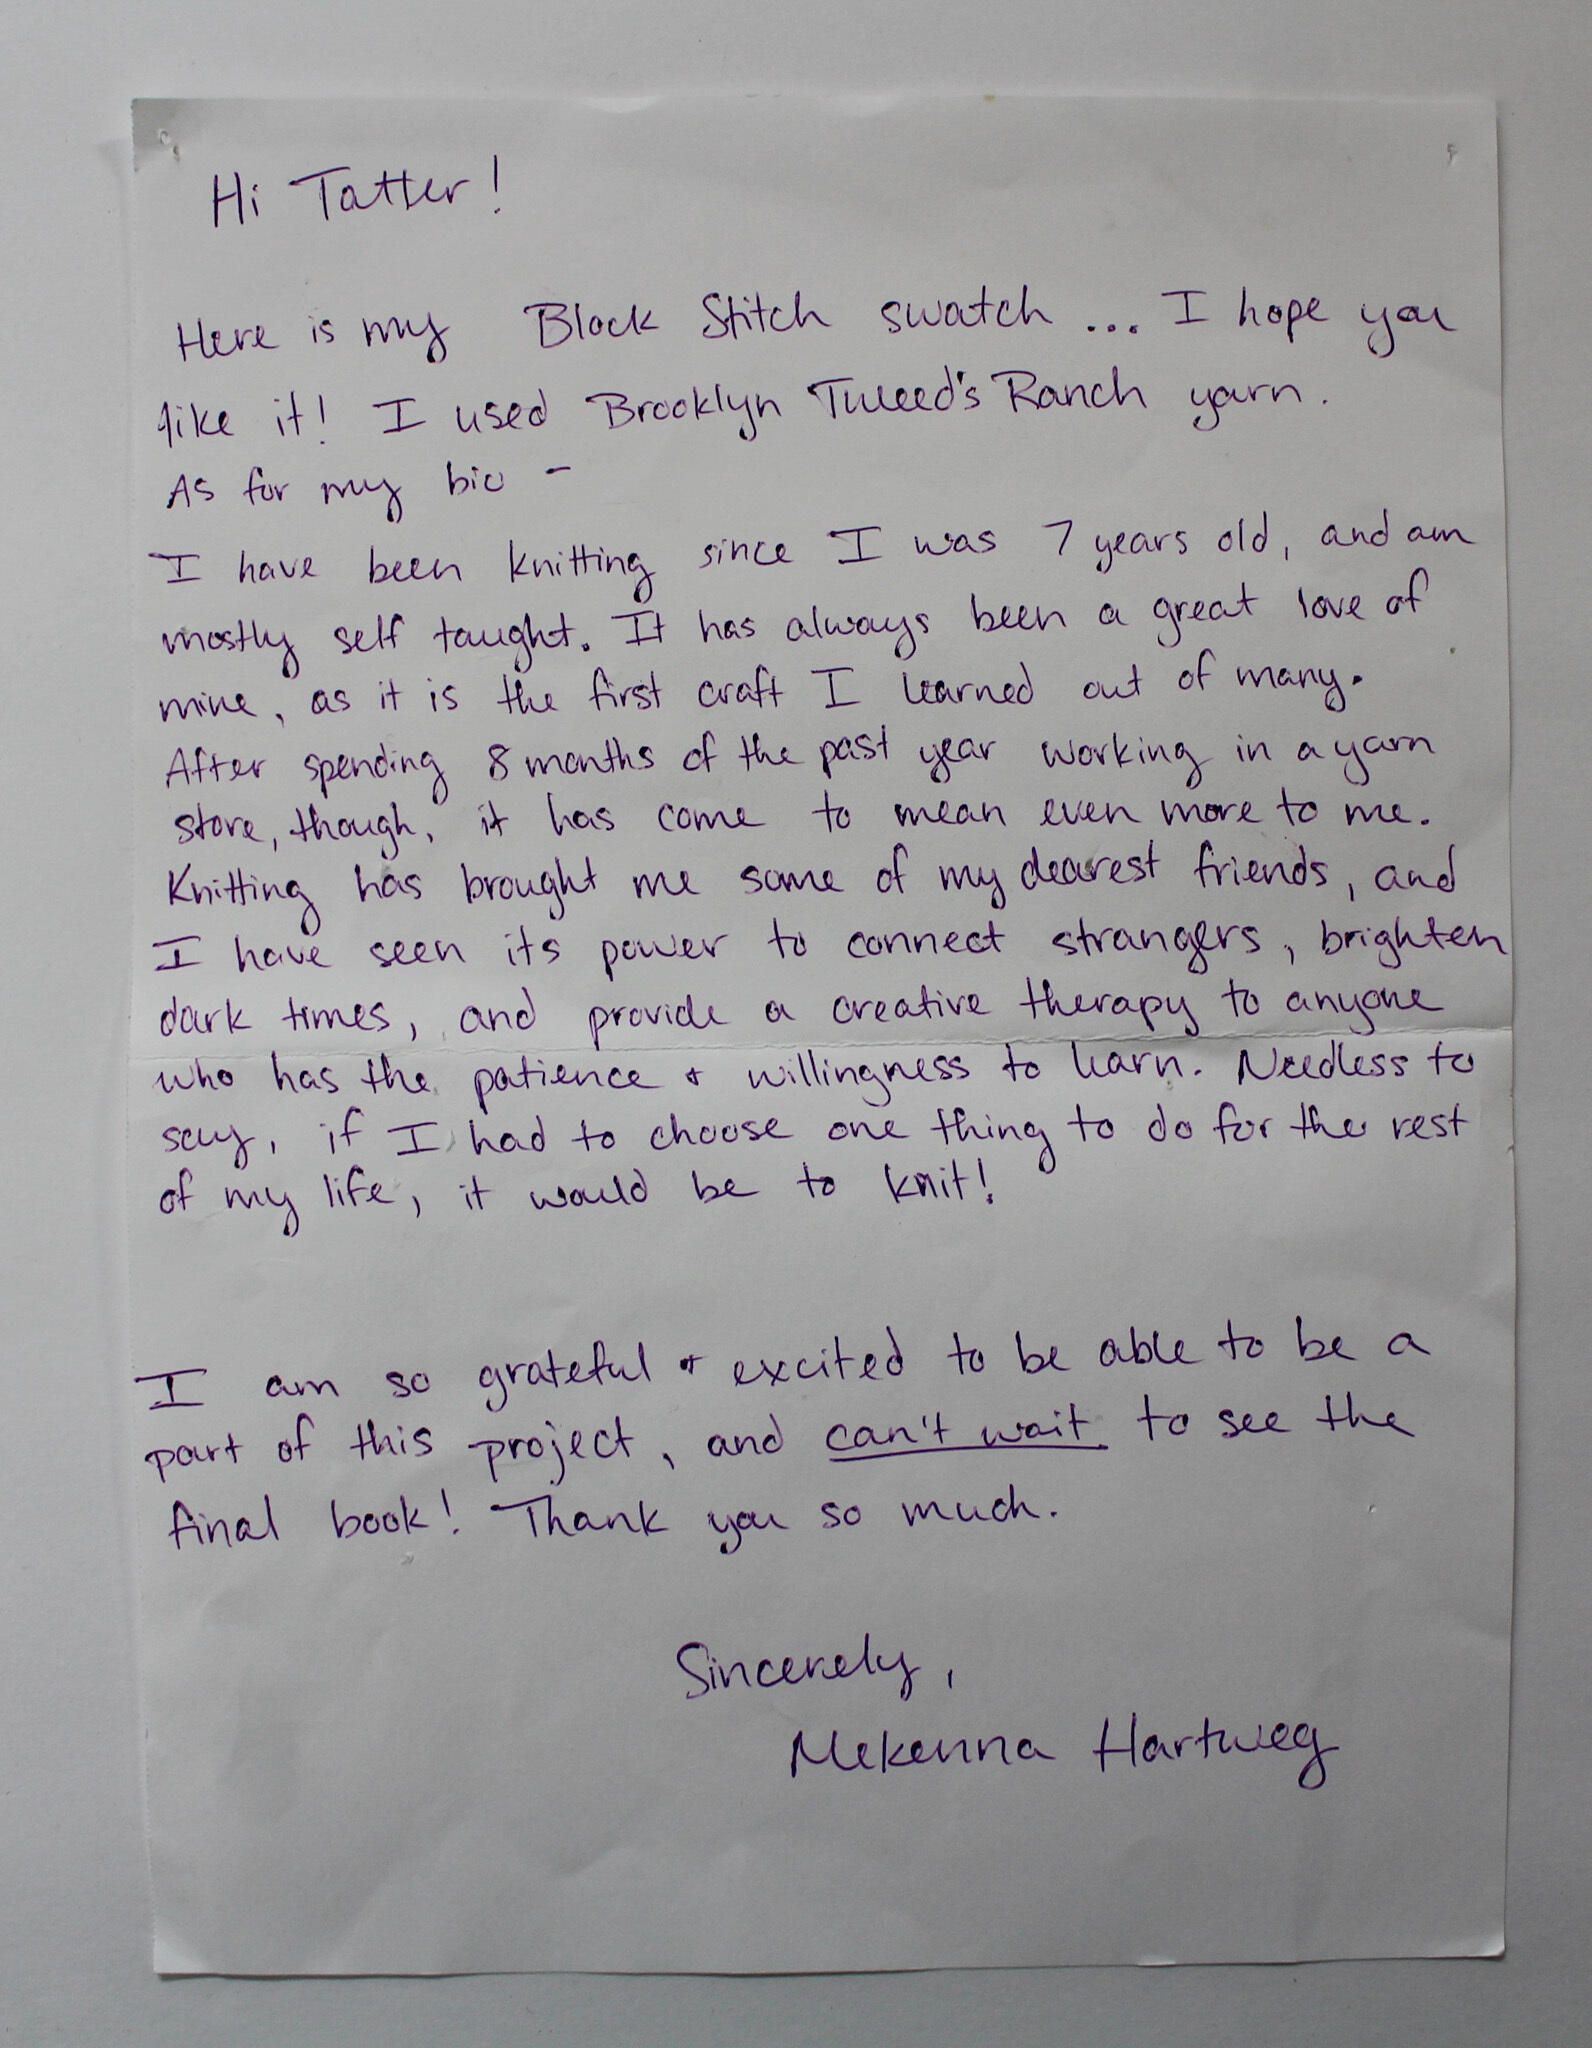 Hi Tatter!
Here is my Block Stitch swatch ... I hope you
like it! I used Brooklyn Tweed's Ranch yarn.
As for my bio -
I have been knitting since I was 7 years old, and am
mostly self taught. It has always been a great love of
mine, as it is the first craft I learned out of many.
After spending 8 months of the past year working in a yarn
store, though, it has come to mean even more to me.
Knitting has brought me some of my dearest friends, and
I have seen its power to connect strangers, brighten
dark times, and provide a creative therapy to anyone
who has the patience & willingness to learn. Needless to
say, if I had to choose one thing to do for the rest
of my life, it would be to knit!
I am so grateful & excited to be able to be a
part of this project, and can't wait to see the
final book! Thank you so much.
Sincerely,
Mekenna Hartweg